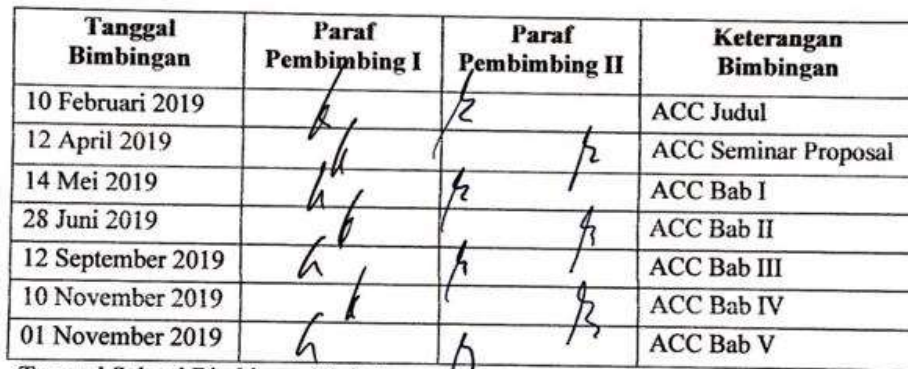 Tanggal Bimbingan | Paraf Pembimbing I | Paraf Pembimbing II | Keterangan Bimbingan
10 Februari 2019 | ACC Judul
12 April 2019 | ACC Seminar Proposal
14 Mei 2019 | ACC Bab I
28 Juni 2019 | ACC Bab II
12 September 2019 | ACC Bab III
10 November 2019 | ACC Bab IV
01 November 2019 | ACC Bab V